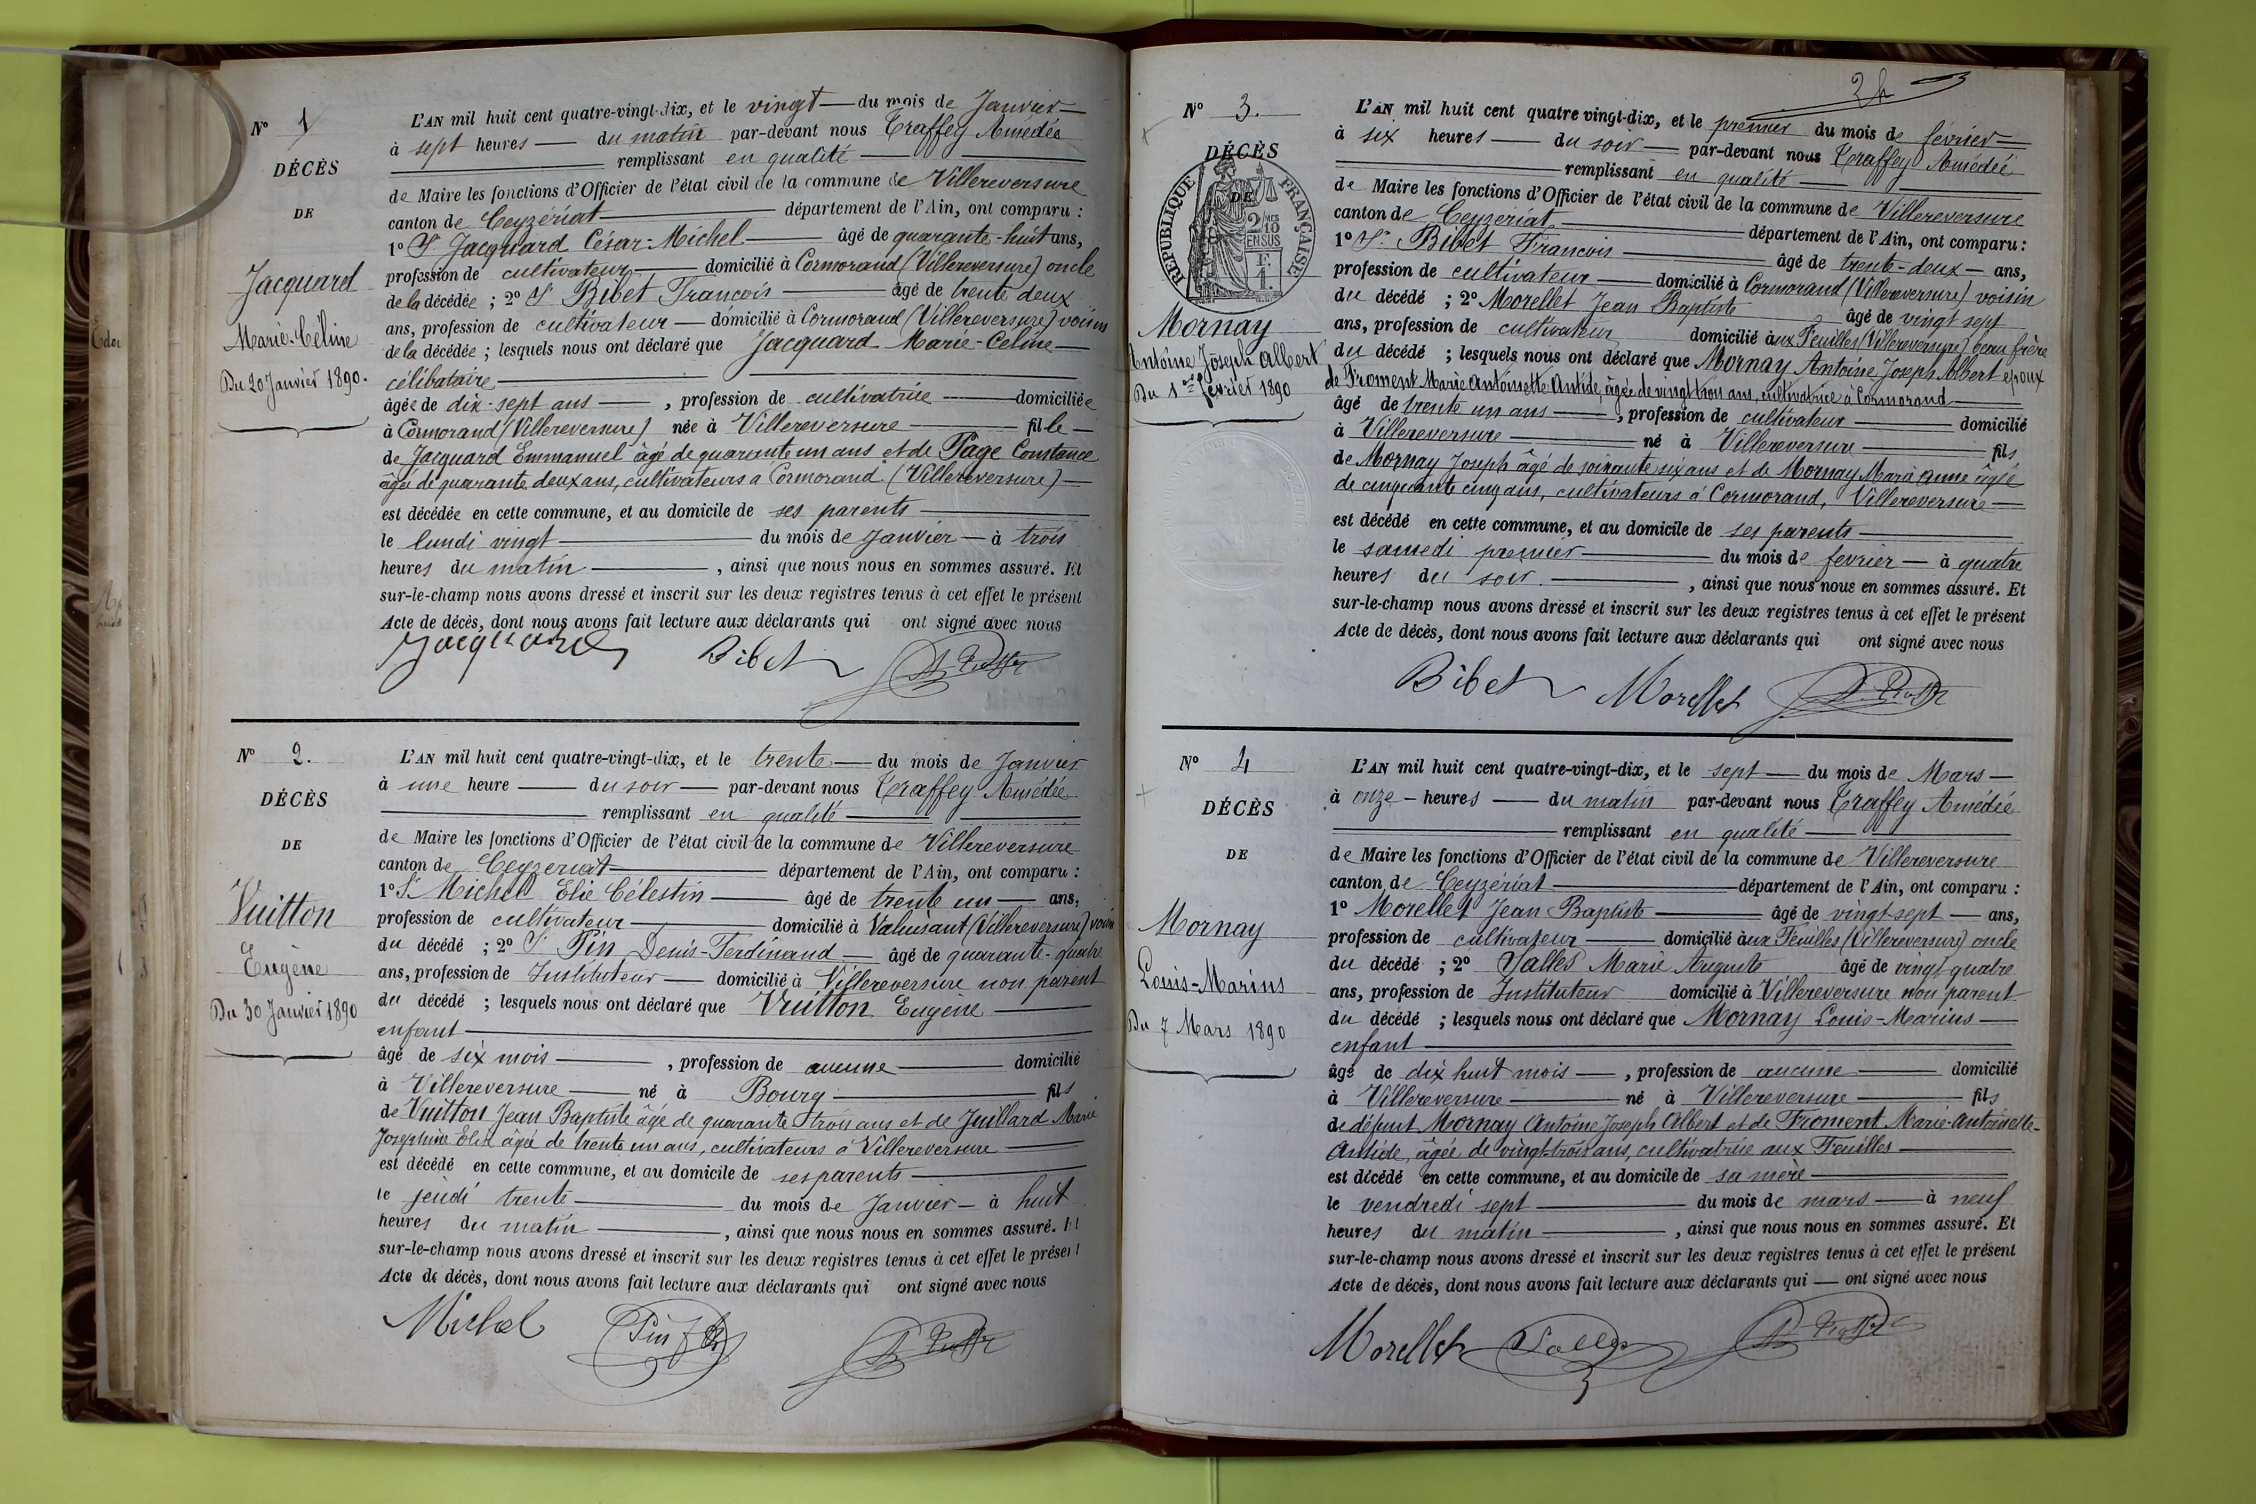 N° 1
DÉCÈS
DE
Jacquard
Marie-Céline
Du 20 Janvier 1890.
L'AN mil huit cent quatre-vingt-dix, et le vingt du mois de Janvier
à sept heures du matin par-devant nous Traffey Amédée
remplissant en qualité
de Maire les fonctions d'Officier de l'état civil de la commune de Villereversure
canton de Ceyzériat département de l'Ain, ont comparu :
1° Sr Jacquard César-Michel âgé de quarante-huit ans,
profession de cultivateur domicilié à Cormorand (Villereversure) oncle
de la décédée ; 2° Sr Bibet François âgé de trente deux
ans, profession de cultivateur domicilié à Cormorand (Villereversure) voisin
de la décédée ; lesquels nous ont déclaré que Jacquard Marie-Céline
célibataire
âgée de dix-sept ans , profession de cultivatrice domiciliée
à Cormorand (Villereversure) née à Villereversure fille
de Jacquard Emmanuel âgé de quarante un ans et de Page Constance
âgée de quarante deux ans, cultivateurs à Cormorand (Villereversure)
est décédée en cette commune, et au domicile de ses parents
le lundi vingt du mois de Janvier à trois
heures du matin , ainsi que nous nous en sommes assuré. Et
sur-le-champ nous avons dressé et inscrit sur les deux registres tenus à cet effet le présent
Acte de décès, dont nous avons fait lecture aux déclarants qui ont signé avec nous
Jacquard Bibet
N° 2.
DÉCÈS
DE
Vuitton
Eugène
Du 30 Janvier 1890
L'AN mil huit cent quatre-vingt-dix, et le trente du mois de Janvier
à une heure du soir par-devant nous Traffey Amédée
remplissant en qualité
de Maire les fonctions d'Officier de l'état civil de la commune de Villereversure
canton de Ceyzeriat département de l'Ain, ont comparu :
1° Sr Michel Elie Célestin âgé de trente un ans,
profession de cultivateur domicilié à Valuisant (Villereversure) voisin
du décédé ; 2° Sr Pin Denis-Ferdinand âgé de quarante-quatre
ans, profession de Instituteur domicilié à Villereversure non parent
du décédé ; lesquels nous ont déclaré que Vuitton Eugène
enfant
âgé de six mois , profession de aucune domicilié
à Villereversure né à Bourg fils
de Vuitton Jean Baptiste âgé de quarante trois ans et de Juillard Marie
Josephine Elisa âgée de trente un ans, cultivateurs à Villereversure
est décédé en cette commune, et au domicile de ses parents
le jeudi trente du mois de Janvier à huit
heures du matin , ainsi que nous nous en sommes assuré. Et
sur-le-champ nous avons dressé et inscrit sur les deux registres tenus à cet effet le présent
Acte de décès, dont nous avons fait lecture aux déclarants qui ont signé avec nous
Michel Pin
2
N° 3.
DÉCÈS
DE
RÉPUBLIQUE FRANÇAISE
2/10 EN SUS
Mornay
Antoine Joseph Albert
Du 1er février 1890
L'AN mil huit cent quatre vingt-dix, et le premier du mois de février
à six heures du soir par-devant nous Traffey Amédée
remplissant en qualité
de Maire les fonctions d'Officier de l'état civil de la commune de Villereversure
canton de Ceyzériat département de l'Ain, ont comparu :
1° Sr Bibet François âgé de trente-deux ans,
profession de cultivateur domicilié à Cormorand (Villereversure) voisin
du décédé ; 2° Morellet Jean Baptiste âgé de vingt sept
ans, profession de cultivateur domicilié aux Feuilles (Villereversure) beau frère
du décédé ; lesquels nous ont déclaré que Mornay Antoine Joseph Albert époux
de Froment Marie Antoinette Antide, âgée de vingt trois ans, cultivatrice à Cormorand
âgé de trente un ans , profession de cultivateur domicilié
à Villereversure né à Villereversure fils
de Mornay Joseph âgé de soixante six ans et de Mornay Marie Anne âgée
de cinquante cinq ans, cultivateurs à Cormorand, Villereversure
est décédé en cette commune, et au domicile de ses parents
le samedi premier du mois de fevrier à quatre
heures du soir , ainsi que nous nous en sommes assuré. Et
sur-le-champ nous avons dressé et inscrit sur les deux registres tenus à cet effet le présent
Acte de décès, dont nous avons fait lecture aux déclarants qui ont signé avec nous
Bibet Morellet
N° 4
DÉCÈS
DE
Mornay
Louis-Marius
Du 7 Mars 1890
L'AN mil huit cent quatre-vingt-dix, et le sept du mois de Mars
à onze heures du matin par-devant nous Traffey Amédée
remplissant en qualité
de Maire les fonctions d'Officier de l'état civil de la commune de Villereversure
canton de Ceyzériat département de l'Ain, ont comparu :
1° Morellet Jean Baptiste âgé de vingt-sept ans,
profession de cultivateur domicilié aux Feuilles (Villereversure) oncle
du décédé ; 2° Salles Marie Auguste âgé de vingt quatre
ans, profession de Instituteur domicilié à Villereversure non parent
du décédé ; lesquels nous ont déclaré que Mornay Louis-Marius
enfant
âgé de dix huit mois , profession de aucune domicilié
à Villereversure né à Villereversure fils
de défunt Mornay Antoine Joseph Albert et de Froment Marie-Antoinette-
Antide, âgée de vingt-trois ans, cultivatrice aux Feuilles
est décédé en cette commune, et au domicile de sa mère
le vendredi sept du mois de mars à neuf
heures du matin , ainsi que nous nous en sommes assuré. Et
sur-le-champ nous avons dressé et inscrit sur les deux registres tenus à cet effet le présent
Acte de décès, dont nous avons fait lecture aux déclarants qui ont signé avec nous
Morellet Salles